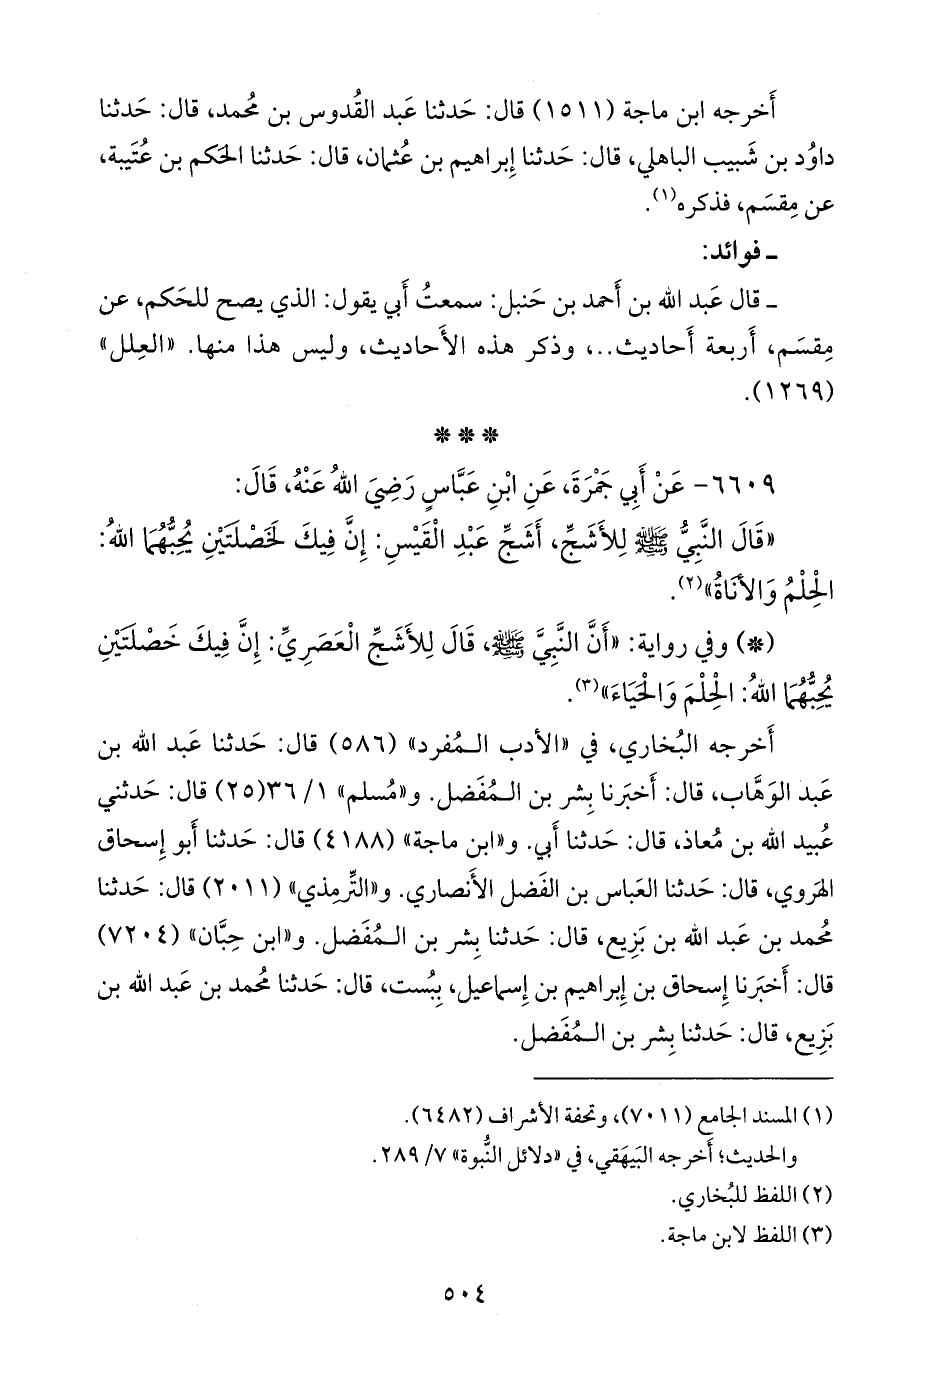 أَخرجه ابن ماجة (١٥١١) قال: حَدثنا عَبد القُدوس بن مُحمد، قال: حَدثنا
داوُد بن شَبيب الباهلي، قال: حَدثنا إِبراهيم بن عُثمان، قال: حَدثنا الحَكم بن عُتَيبة،
عن مِقسَم، فذكره(١).
ـ فوائد:
ـ قال عَبد الله بن أَحمد بن حَنبل: سمعتُ أَبي يقول: الذي يصح للحَكم، عن
مِقسَم، أَربعة أَحاديث..، وذكر هذه الأَحاديث، وليس هذا منها. «العِلل»
(١٢٦٩).
* * *
٦٦٠٩- عَنْ أَبِي جَمْرَةَ، عَنِ ابْنِ عَبَّاسٍ رَضِيَ اللهُ عَنْهُ، قَالَ:
«قَالَ النَّبِيُّ ﷺ لِلأَشَجِّ، أَشَجِّ عَبْدِ الْقَيْسِ: إِنَّ فِيكَ لَخَصْلَتَيْنِ يُحِبُّهُمَا اللهُ:
الْحِلْمُ وَالأَنَاةُ»(٢).
(*) وفي رواية: «أَنَّ النَّبِيَّ ﷺ، قَالَ لِلأَشَجِّ الْعَصَرِيِّ: إِنَّ فِيكَ خَصْلَتَيْنِ
يُحِبُّهُمَا اللهُ: الْحِلْمَ وَالْحَيَاءَ»(٣).
أَخرجه البُخاري، في «الأَدب الـمُفرد» (٥٨٦) قال: حَدثنا عَبد الله بن
عَبد الوَهَّاب، قال: أَخبَرنا بِشر بن الـمُفَضل. و«مُسلم» ١/ ٣٦(٢٥) قال: حَدثني
عُبيد الله بن مُعاذ، قال: حَدثنا أَبي. و«ابن ماجة» (٤١٨٨) قال: حَدثنا أَبو إِسحاق
الهَروي، قال: حَدثنا العَباس بن الفَضل الأَنصاري. و«التِّرمِذي» (٢٠١١) قال: حَدثنا
مُحمد بن عَبد الله بن بَزِيع، قال: حَدثنا بِشر بن الـمُفَضل. و«ابن حِبَّان» (٧٢٠٤)
قال: أَخبَرنا إِسحاق بن إِبراهيم بن إِسماعيل، بِبُست، قال: حَدثنا مُحمد بن عَبد الله بن
بَزِيع، قال: حَدثنا بِشر بن الـمُفَضل.
(١) المسند الجامع (٧٠١١)، وتحفة الأشراف (٦٤٨٢).
والحديث؛ أَخرجه البَيهَقي، في «دلائل النُّبوة» ٧/ ٢٨٩.
(٢) اللفظ للبُخاري.
(٣) اللفظ لابن ماجة.
٥٠٤